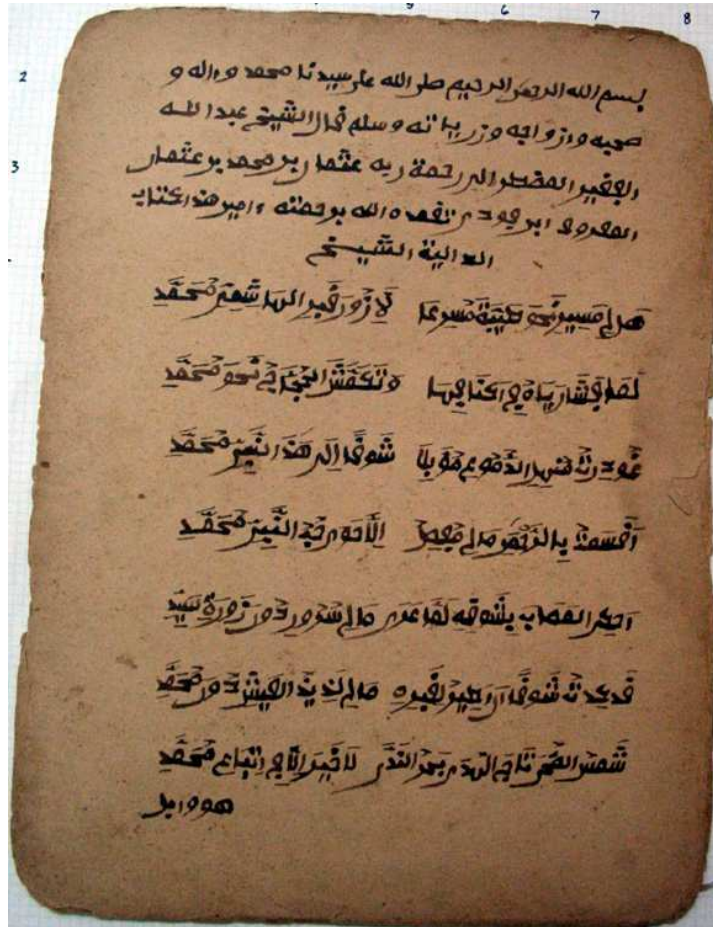 5 6 7 8
2
3
بسم الله الرحمن الرحيم صلى الله على سيدنا محمد وءاله و
صحبه وازواجه وذرياته وسلم قال الشيخ عبد الله
الفقير المضطر الى رحمة ربه عثمان بن محمد بن عثمان
المعروف ابن فودي تغمده الله برحمته ءامين هذا كتاب
الدالية الشيخ
هل لي مسير نحو طيبة مسرعا لازور قبر الهاشمي محمد
لما فشا رياه في اكنافها وتكمش الحجاج نحو محمد
غودرت منهل الدموع موبلا شوقا الى هذا النبي محمد
اقسمت بالرحمن ما لي مفصل الا حوى حب النبي محمد
احكي المصاب بشوقه لما عرى ما لي سرور دون زورة سيد
قد كدت شوقا ان اطير لقبره ما لي لذيذ العيش دون محمد
شمس الضحى تاج الهدى بحر الندى لا خير الا في اتباع محمد